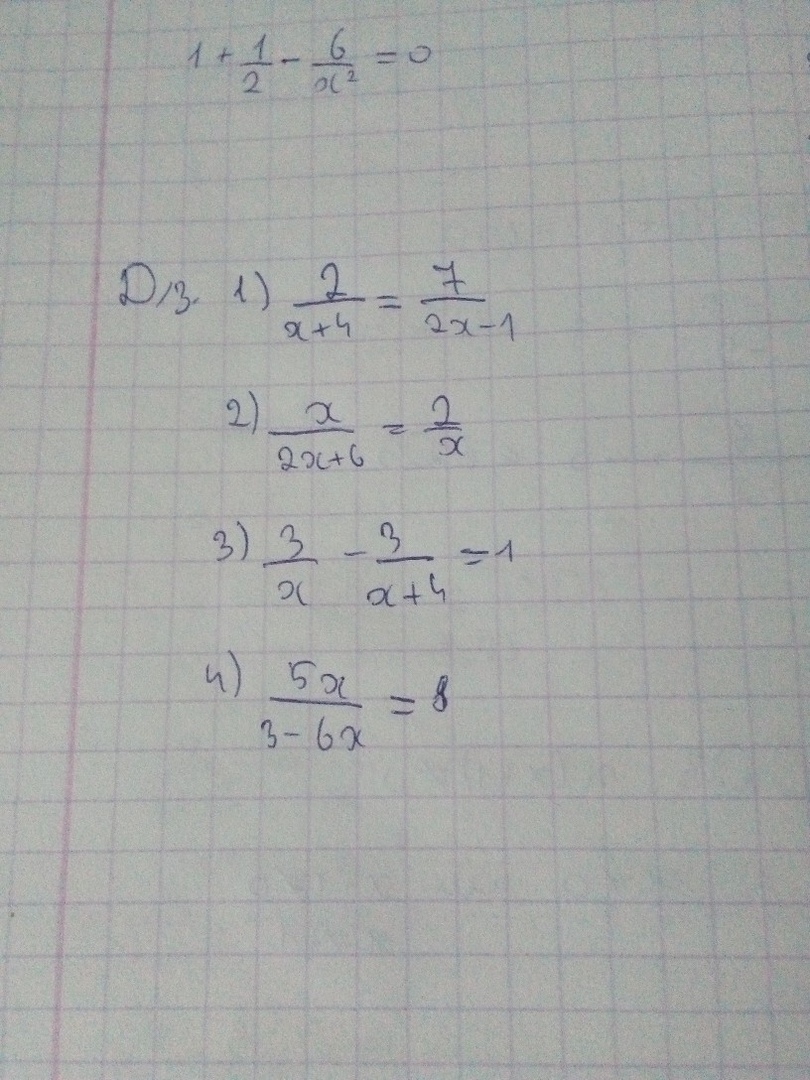 1 + 1/2 - 6/x² = 0
D/з. 1) 2/(x+4) = 7/(2x-1)
2) x/(2x+6) = 2/x
3) 3/x - 3/(x+4) = 1
4) 5x/(3-6x) = 8